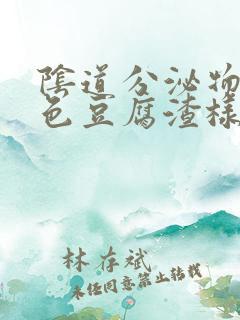 陰道分泌物
色豆腐渣樣
林存斌
未经同意禁止转载